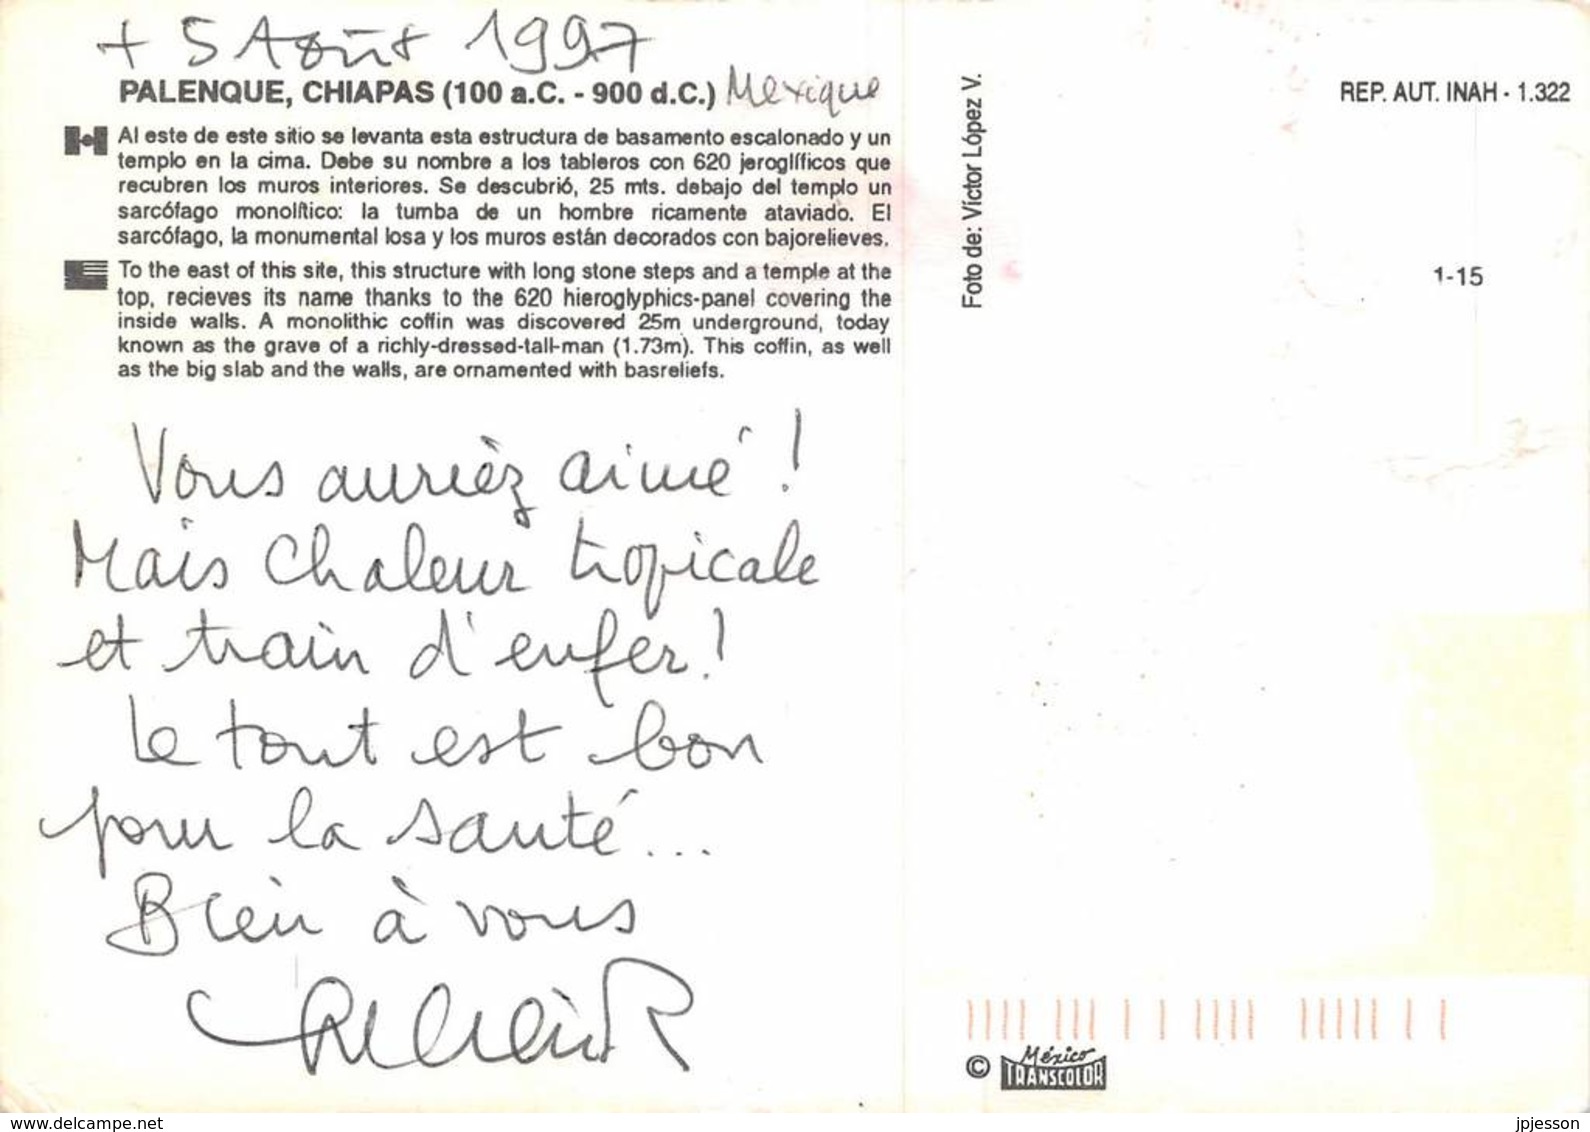 + 5 Août 1997
PALENQUE, CHIAPAS (100 a.C. - 900 d.C.) Mexique
Al este de este sitio se levanta esta estructura de basamento escalonado y un
templo en la cima. Debe su nombre a los tableros con 620 jeroglíficos que
recubren los muros interiores. Se descubrió, 25 mts. debajo del templo un
sarcófago monolítico: la tumba de un hombre ricamente ataviado. El
sarcófago, la monumental losa y los muros están decorados con bajorelieves.
To the east of this site, this structure with long stone steps and a temple at the
top, recieves its name thanks to the 620 hieroglyphics-panel covering the
inside walls. A monolithic coffin was discovered 25m underground, today
known as the grave of a richly-dressed-tall-man (1.73m). This coffin, as well
as the big slab and the walls, are ornamented with basreliefs.
Vous aurièz aimé !
Mais Chaleur tropicale
et train d'enfer !
Le tout est bon
pour la santé...
Bien à vous
Foto de: Víctor López V.
REP. AUT. INAH - 1.322
1-15
© México
TRANSCOLOR
www.delcampe.net
jpjesson